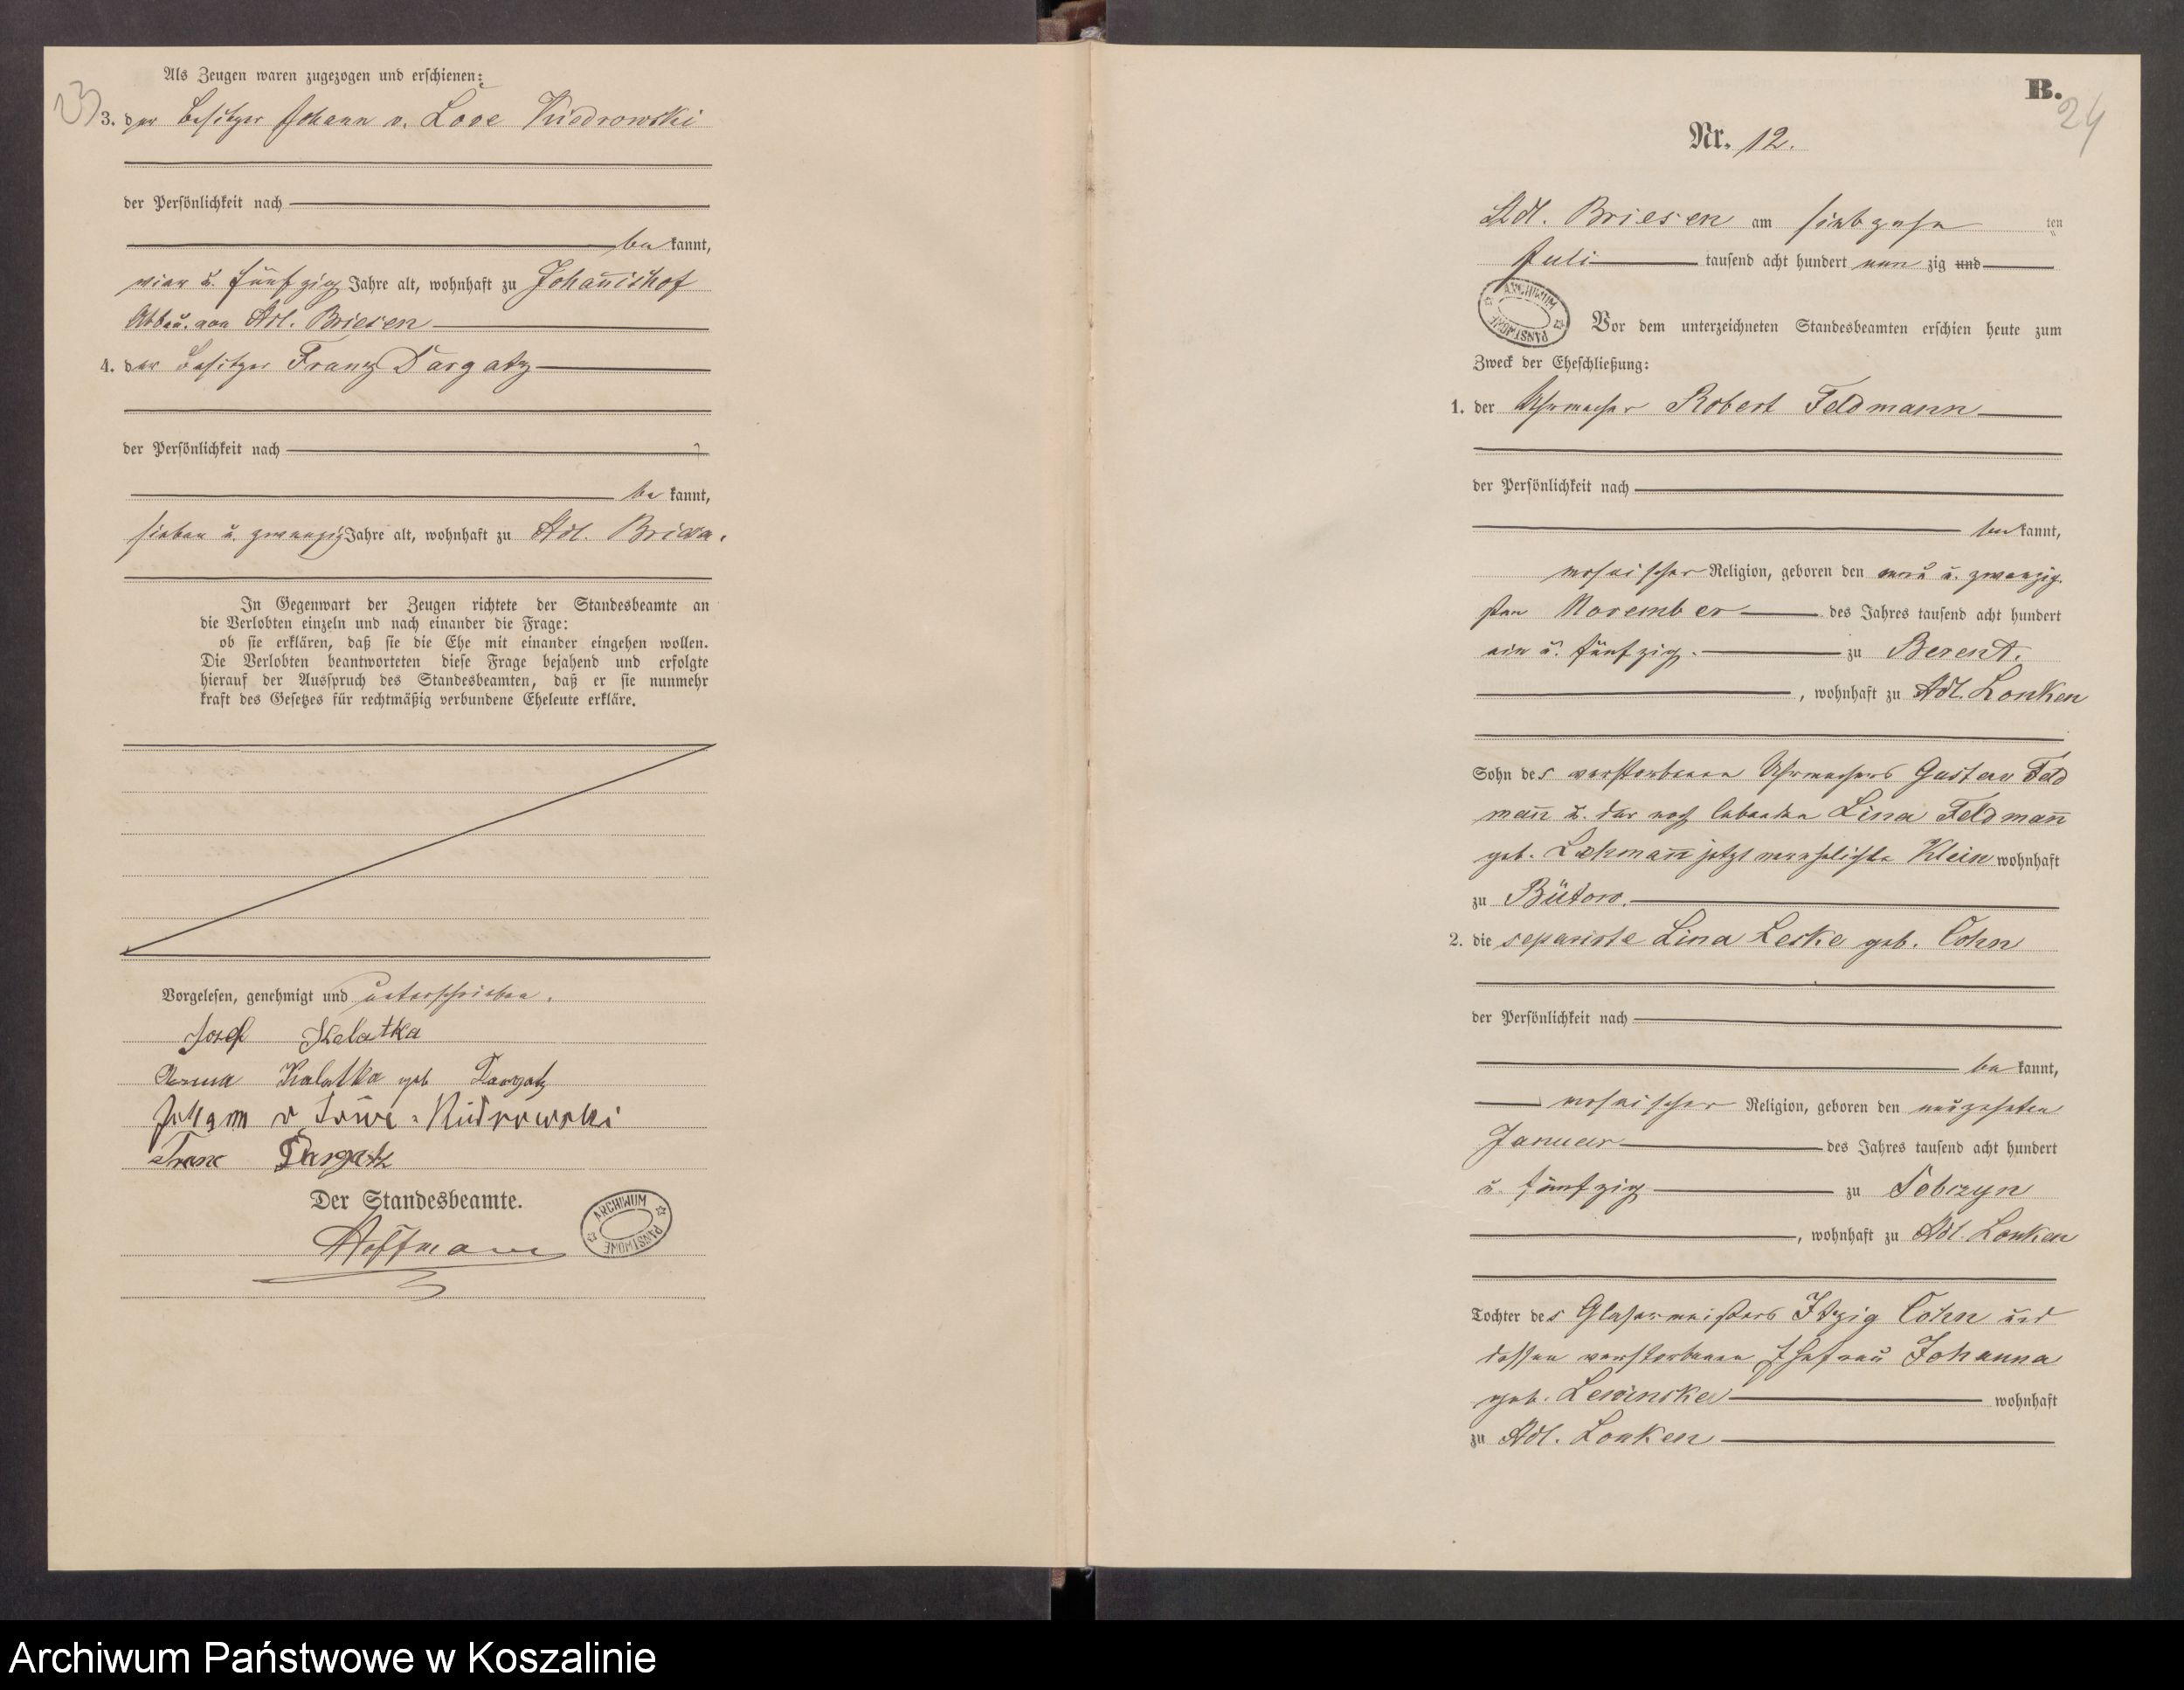 Als Zeugen waren zugezogen und erschienen:
23
3. der Besitzer Johann v. Kiedrowski
der Persönlichkeit nach
be kannt,
vier u. fünfzig Jahre alt, wohnhaft zu Johannishof
Abbau von Adl. Briesen
4. der Besitzer Franz Dargatz
der Persönlichkeit nach
be kannt,
sieben u. zwanzig Jahre alt, wohnhaft zu Adl. Briesen.
In Gegenwart der Zeugen richtete der Standesbeamte an
die Verlobten einzeln und nach einander die Frage:
ob sie erklären, daß sie die Ehe mit einander eingehen wollen.
Die Verlobten beantworteten diese Frage bejahend und erfolgte
hierauf der Ausspruch des Standesbeamten, daß er sie nunmehr
kraft des Gesetzes für rechtmäßig verbundene Eheleute erkläre.
Vorgelesen, genehmigt und unterschrieben.
Josef Kalatka
Kalatka geb Dargatz
Johann v
Dargatz
Der Standesbeamte.
Hoffmann
ARCHIWUM PAŃSTWOWE
B.
24
Nr. 12.
Adl. Briesen am siebzehn ten
Juli tausend acht hundert neun zig und
ARCHIWUM PAŃSTWOWE
Vor dem unterzeichneten Standesbeamten erschien heute zum
Zweck der Eheschließung:
1. der Uhrmacher Robert Feldmann
der Persönlichkeit nach
be kannt,
mosaischer Religion, geboren den neun u. zwanzig
sten November des Jahres tausend acht hundert
ein u. fünfzig. zu Berent.
, wohnhaft zu Adl. Lonken
Sohn des verstorbenen Uhrmachers Gustav Feld
mann u. der noch lebenden Lina Feldmann
geb. jetzt verehelichte Klein wohnhaft
zu Bütow.
2. die separirte Lina Leske geb. Cohn
der Persönlichkeit nach
be kannt,
mosaischer Religion, geboren den
Januar des Jahres tausend acht hundert
u. fünfzig zu
, wohnhaft zu Adl. Lonken
Tochter des Glasermeisters Itzig Cohn und
dessen verstorbenen Ehefrau Johanna
geb. Lewinska wohnhaft
zu Adl. Lonken
Archiwum Państwowe w Koszalinie